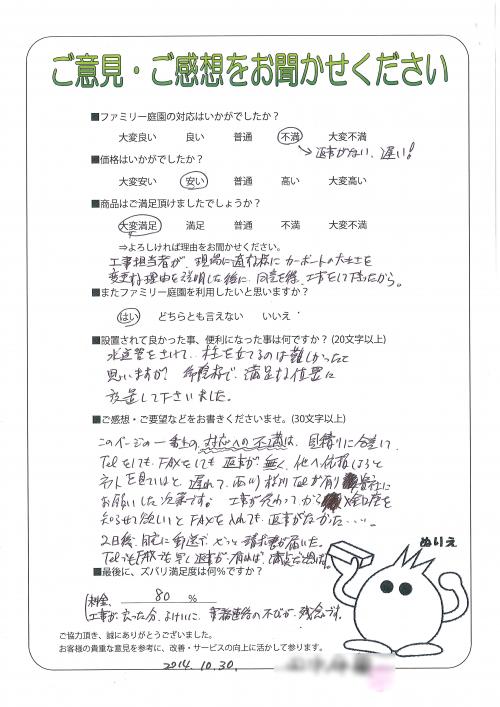 ご意見・ご感想をお聞かせください
■ファミリー庭園の対応はいかがでしたか？
大変良い 良い 普通 不満 大変不満
→返事がない、遅い!
■価格はいかがでしたか？
大変安い 安い 普通 高い 大変高い
■商品はご満足頂けましたでしょうか？
大変満足 満足 普通 不満 大変不満
⇒よろしければ理由をお聞かせください。
工事担当者が、現場に カーポートの
変更 理由を説明した後に、同意を得、工事をして下さったから。
■またファミリー庭園を利用したいと思いますか？
はい どちらとも言えない いいえ
■設置されて良かった事、便利になった事は何ですか？(20文字以上)
水道管をさけて、柱を立てるのは難しかったと
思いますが、御陰様で、満足な位置に
設置して下さいました。
■ご感想・ご要望などをお書きくださいませ。(30文字以上)
このページの一番上の、対応への不満は、見積りに関して、
Telをしても、FAXをしても 返事が無く、他へ依頼しようと
ネットを見ていると、遅れて、 Telが有り 貴社に
お願いした次第です。工事が終わってから 金口座を
知らせて欲しいとFAXを入れても、返事がなかった・・・・。
2日後、 郵送で、やっと請求書が届いた。
TelでもFAXでも早く返事が有れば、満点と思います。
■最後に、ズバリ満足度は何％ですか？
料金、 80 %
工事が良かった分、よけいに、事務連絡の不びが、残念です。
ぬりえ
ご協力頂き、誠にありがとうございました。
お客様の貴重な意見を参考に、改善・サービスの向上に活かして参ります。
2014.10.30.